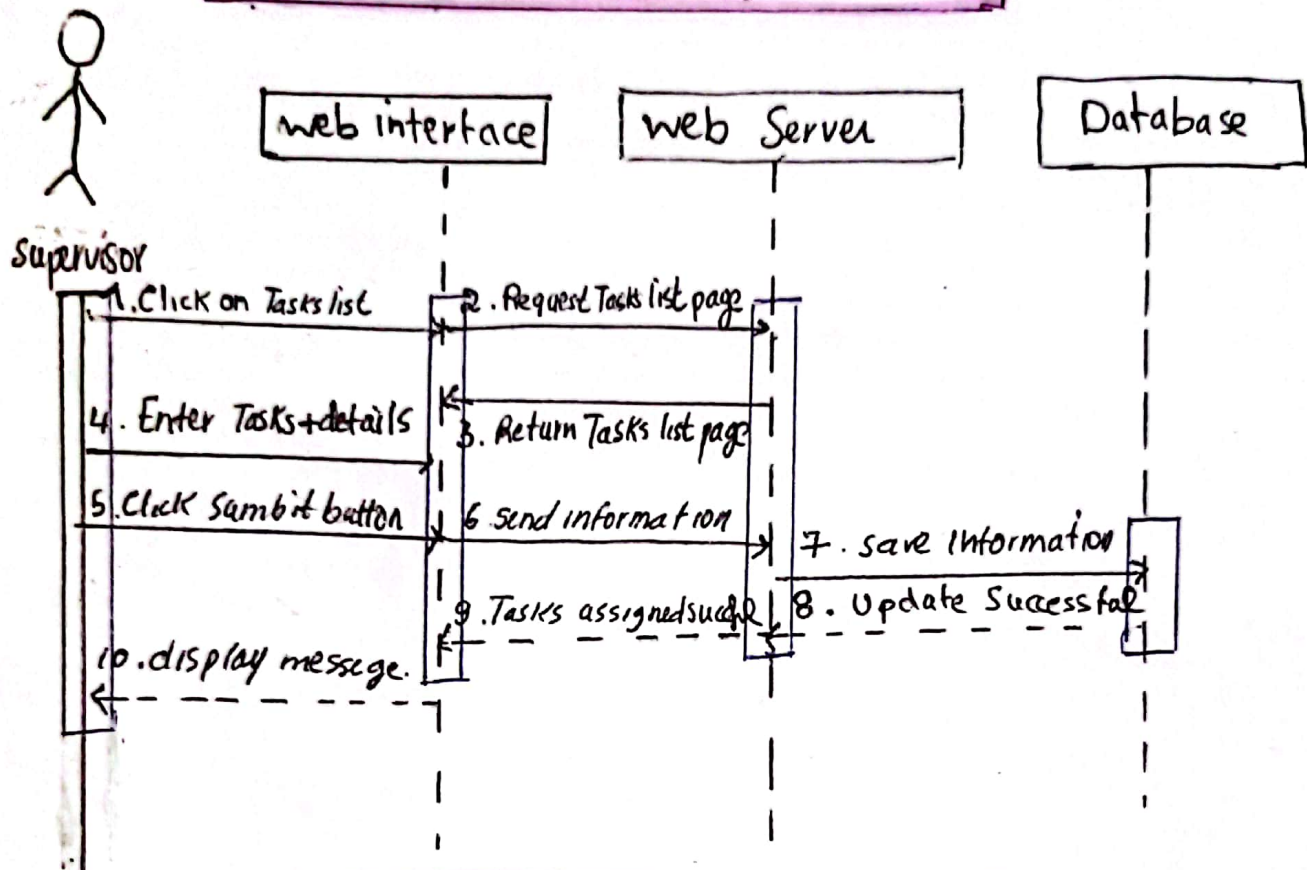 web interface
web Server
Database
supervisor
1.Click on Tasks list
2. Request Tasks list page
3. Return Tasks list page
4. Enter Tasks+details
5.Click Sambit button
6 send information
7. save information
8. Update Successful
9.Tasks assigned
10.display messege.